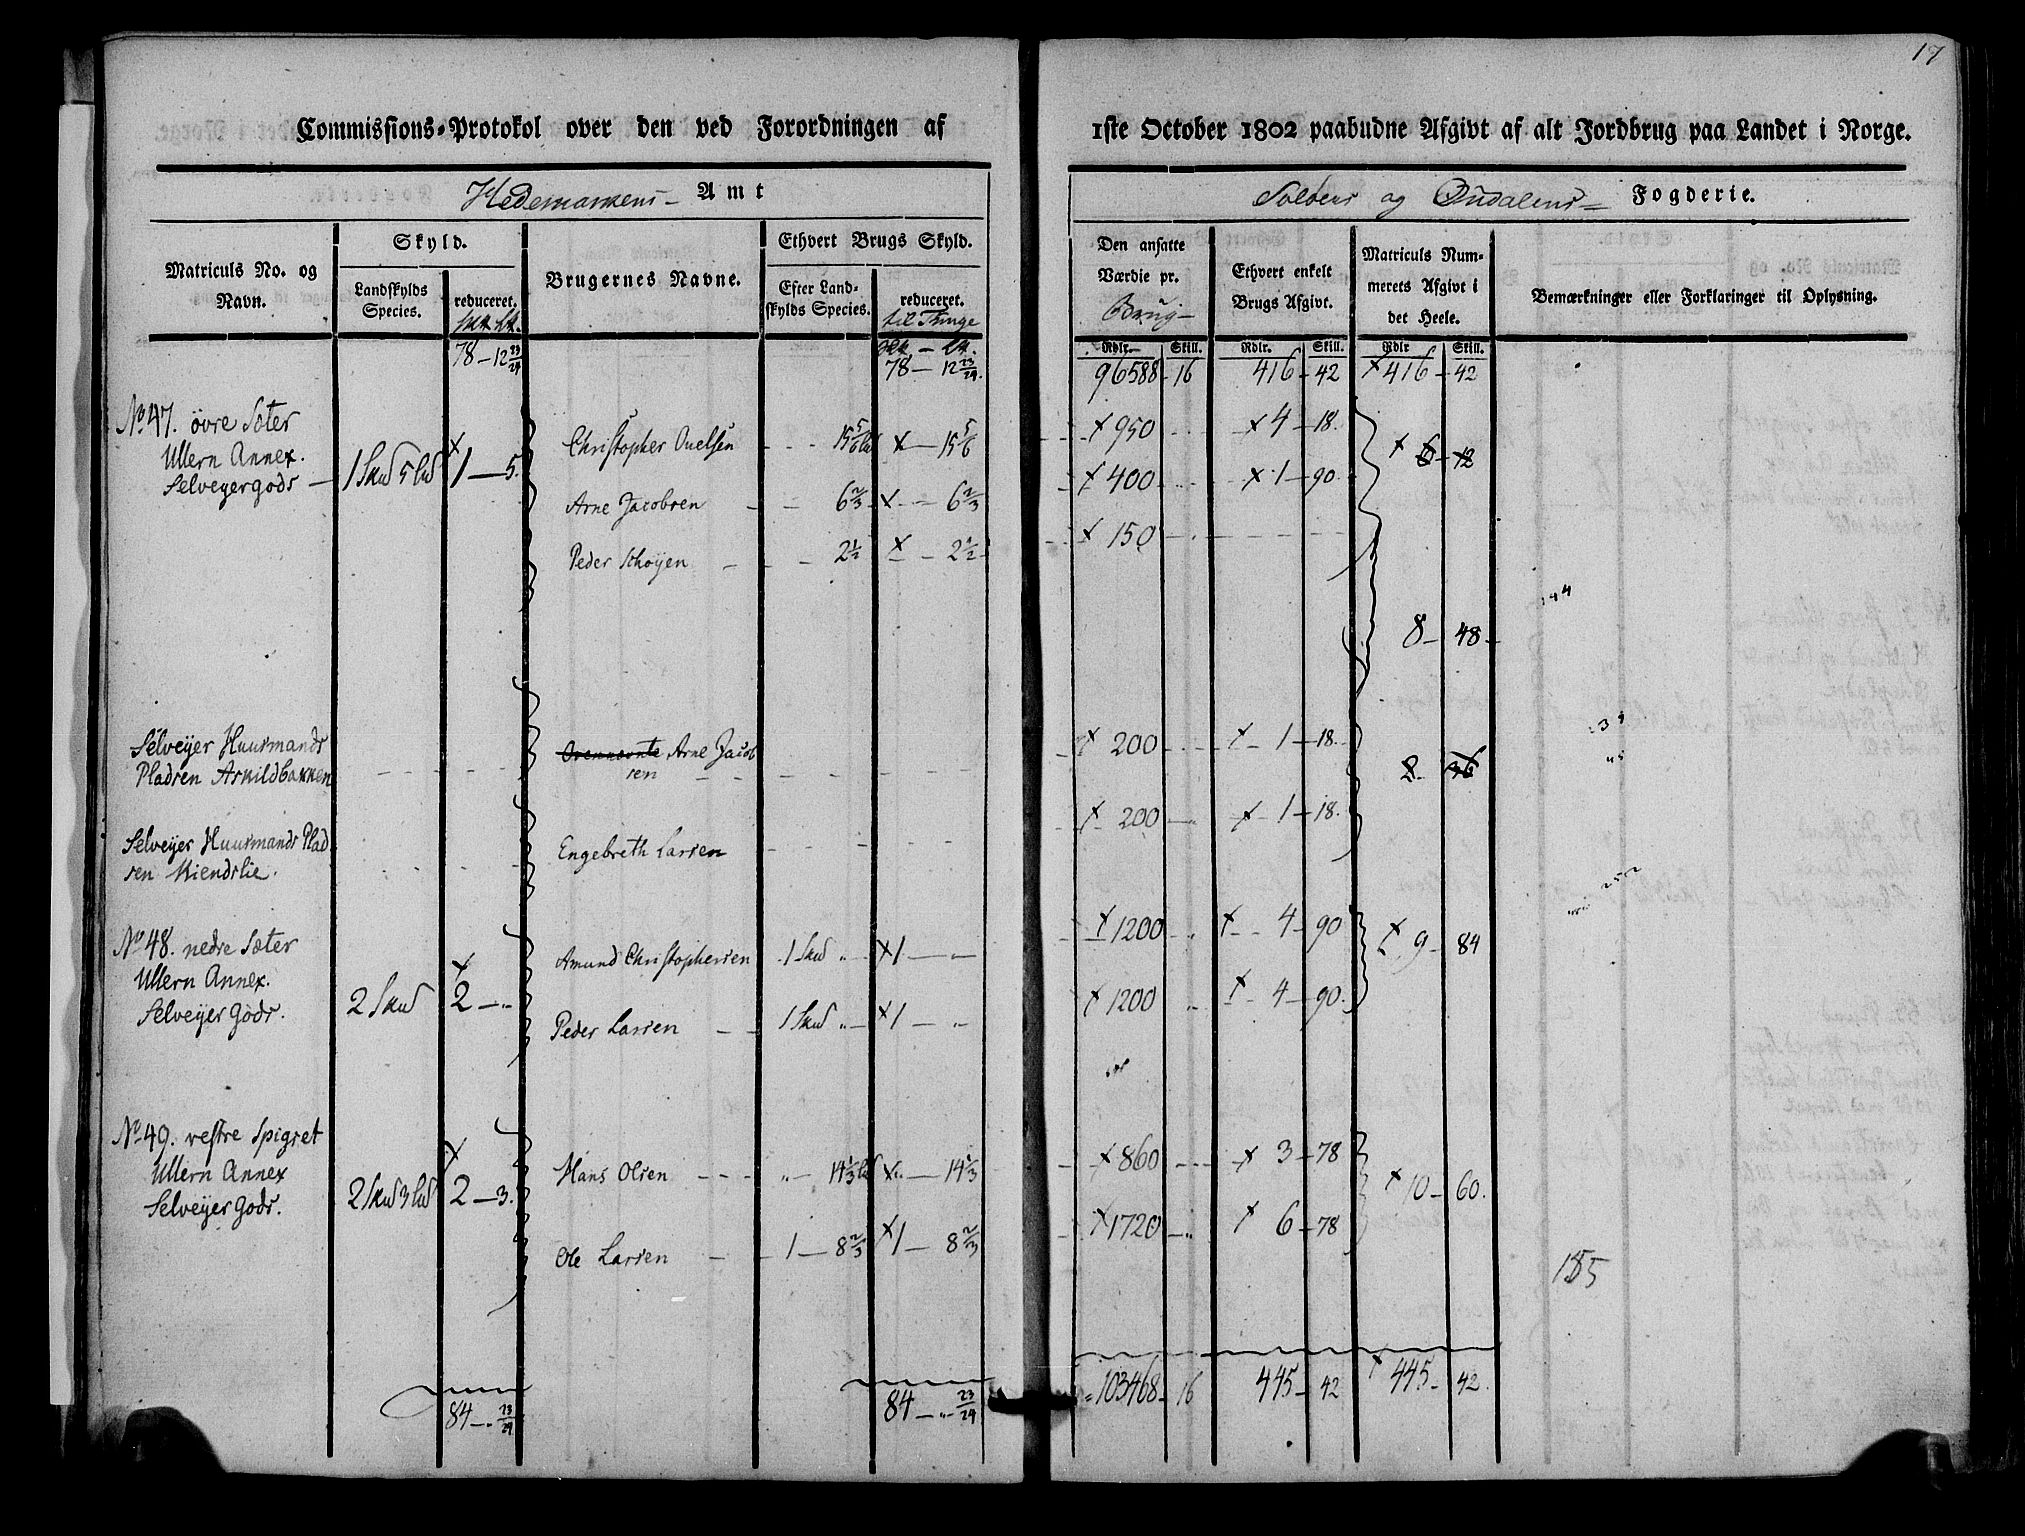 17
Commissions-Protokol over den ved Forordningen af 1ste October 1802 paabudne Afgivt af alt Jordbrug paa Landet i Norge.
Hedemarkens Amt
Soløers og Oudalens Fogderie.
Matriculs No. og Navn.
Skyld.
Landskylds Species.
reduceret.
Brugernes Navne.
Ethvert Brugs Skyld.
Efter Landskylds Species.
reduceret. til Tunge
Den ansatte Værdie pr. Brug
Ethvert enkelt Brugs Afgivt.
Matriculs Nummerets Afgivt i det Heele.
Bemærkninger eller Forklaringer til Oplysning.
Rdlr. Skill. Rdlr. Skill. Rdlr Skill.
78 — 12 23/24 78 — 12 23/24. 96588 - 16 416 - 42 × 416 - 42
No 47. övre Sæter
Ullern Annex.
Selveyergods — 1 Skud 5 lud × 1 — 5.
Christopher Ouelsen - - - 15 5/6 lud × — 15 5/6 × 950 × 4 - 18. × 6 - 12
Arne Jacobsen - - 6 2/3 × - 6 2/3 × 400 × 1 - 90.
Peder Schøyen - - - 2 1/2 × - 2 1/2 × 150
144
8 - 48
Selveyer Huusmands
Pladsen Askildbakken
Ovennevnte Arne Jacob
sen
× 200 × 1 - 18. 2 - 36
Selveyer Huusmands Plad
sen Kiendslie.
Engebreth Larsen × 200 × 1 - 18.
252
No 48. nedre Sæter
Ullern Annex.
Selveyer Gods. 2 Skud × 2 - „
Amund Christophersen 1 Skud „ × 1 — „ × 1200 × 4 - 90 × 9 - 84
Peder Larsen - - 1 Skud „ × 1 — „ × 1200 × 4 - 90.
No 49. vestre Spigset
Ullern Annex
Selveyer Gods. 2 Skud 3 lud × 2 — 3.
Hans Olsen - - - „ - 14 1/3 lud × „ - 14 1/3 × 860 × 3 - 78 × 10 - 60.
Ole Larsen - - 1 - 8 2/3 × 1 — 8 2/3 × 1720 × 6 - 78
155
84 - „ 23/24 84 - „ - 23/24 103468 - 16 445 - 42 × 445 - 42.